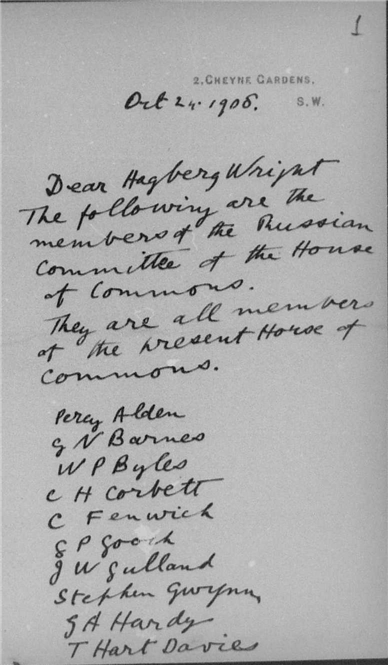 1
2, CHEYNE GARDENS,
S.W.
Oct 24. 1906.
Dear Hagberg Wright
The following are the
members of the Russian
Committee of the House
of Commons.
They are all members
of the present House of
Commons.
Percy Alden
G N Barnes
W P Byles
C H Corbett
C Fenwick
G P Gooch
J W Gulland
Stephen Gwynn
G A Hardy
T Hart Davies